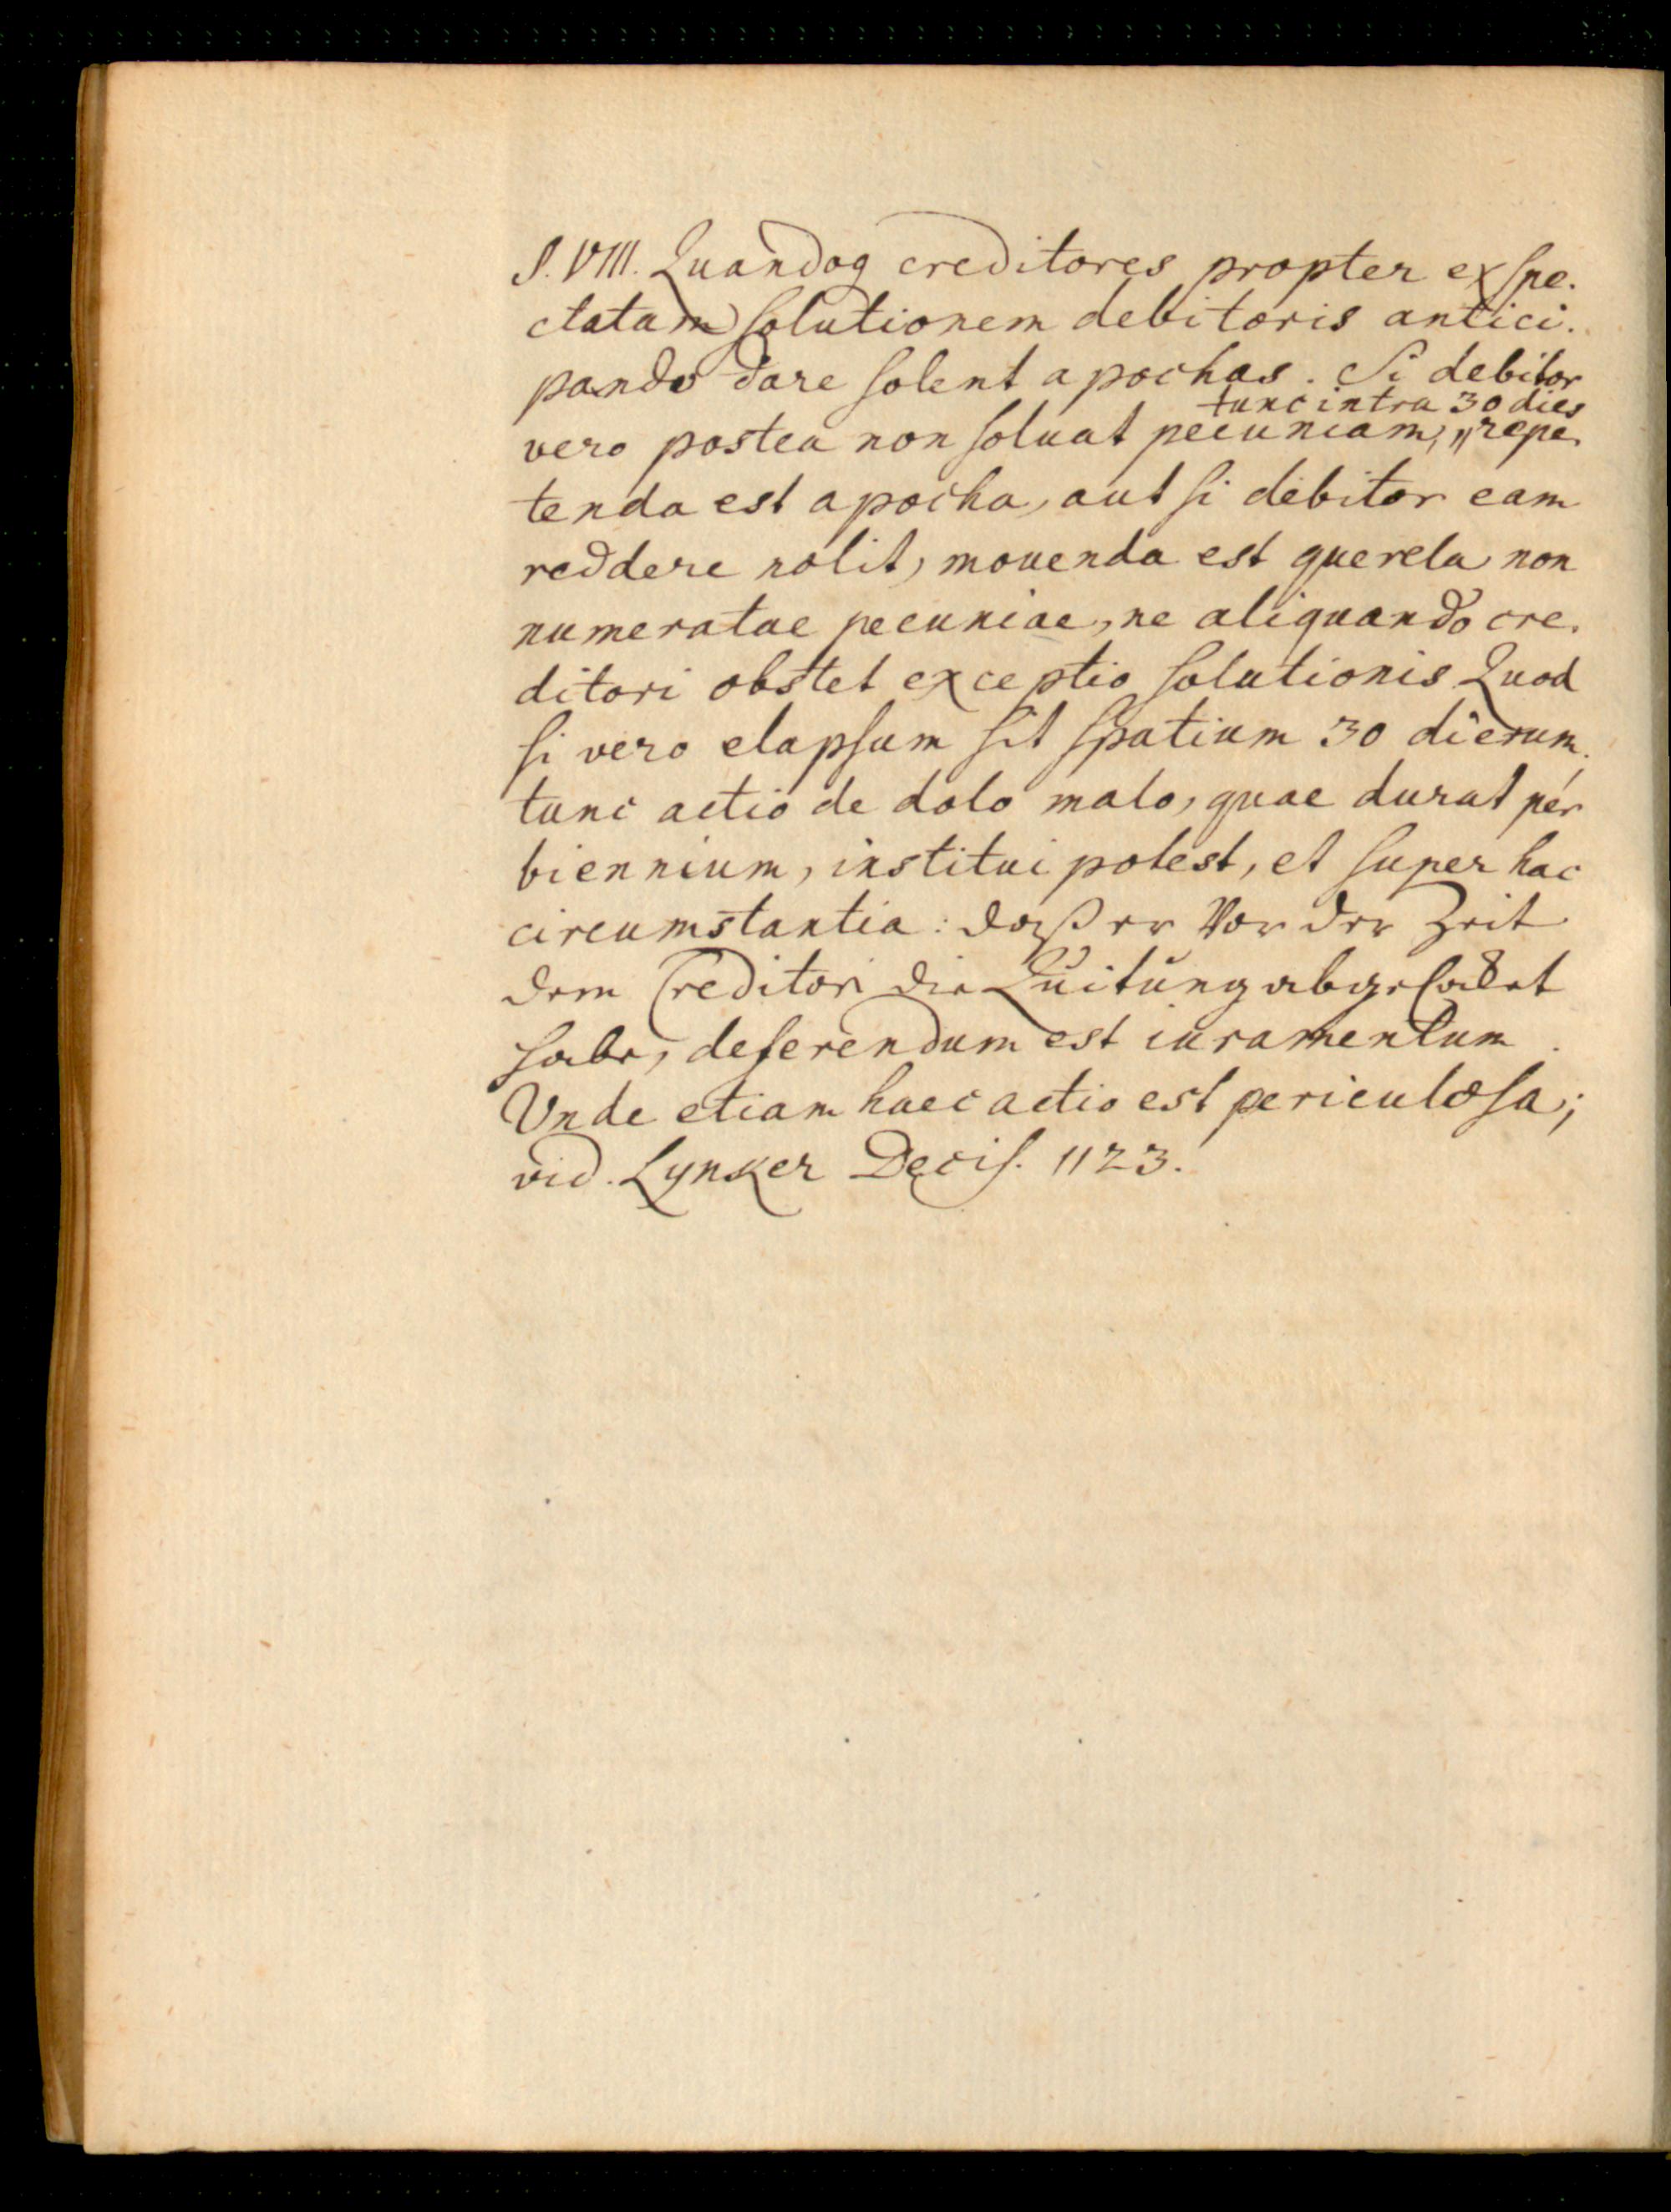 §. VIII. Quandoq creditores propter exſpe.
ctatam ſolutionem debitoris antici.
pando dare ſolent apochas. Si debitor
tunc intra 30 dies
vero postea non ſoluat pecuniam,〃 repe.
tenda est apocha, aut ſi debitor eam
reddere nolit, mouenda est querela non
numeratae pecuniae, ne aliquando cre.
ditori obstet exceptio ſolutionis Quod
ſi vero elapſum ſit ſpatium 30 dierum.
tunc actio de dolo malo, quae durat per
biennium, institui potest, et ſuper hac
circumstantia: daß er vor der Zeit
dem Creditori die Quitung abgeſadet
habe, deferendum est iuramentum.
Vnde etiam haec actio est periculoſa;
vid. Lynker Deciſ. 1123.